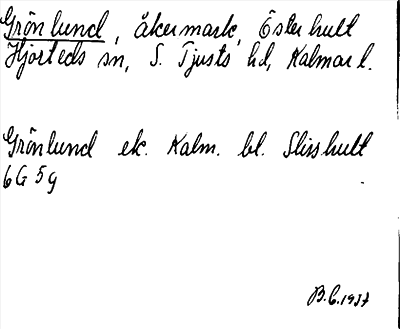 Grönlund, åkermark, Österhult
Hjorteds sn, S. Tjusts hd, Kalmar l.
Grönlund ek. Kalm. bl. Slisshult
6G 5g
B.C. 1937